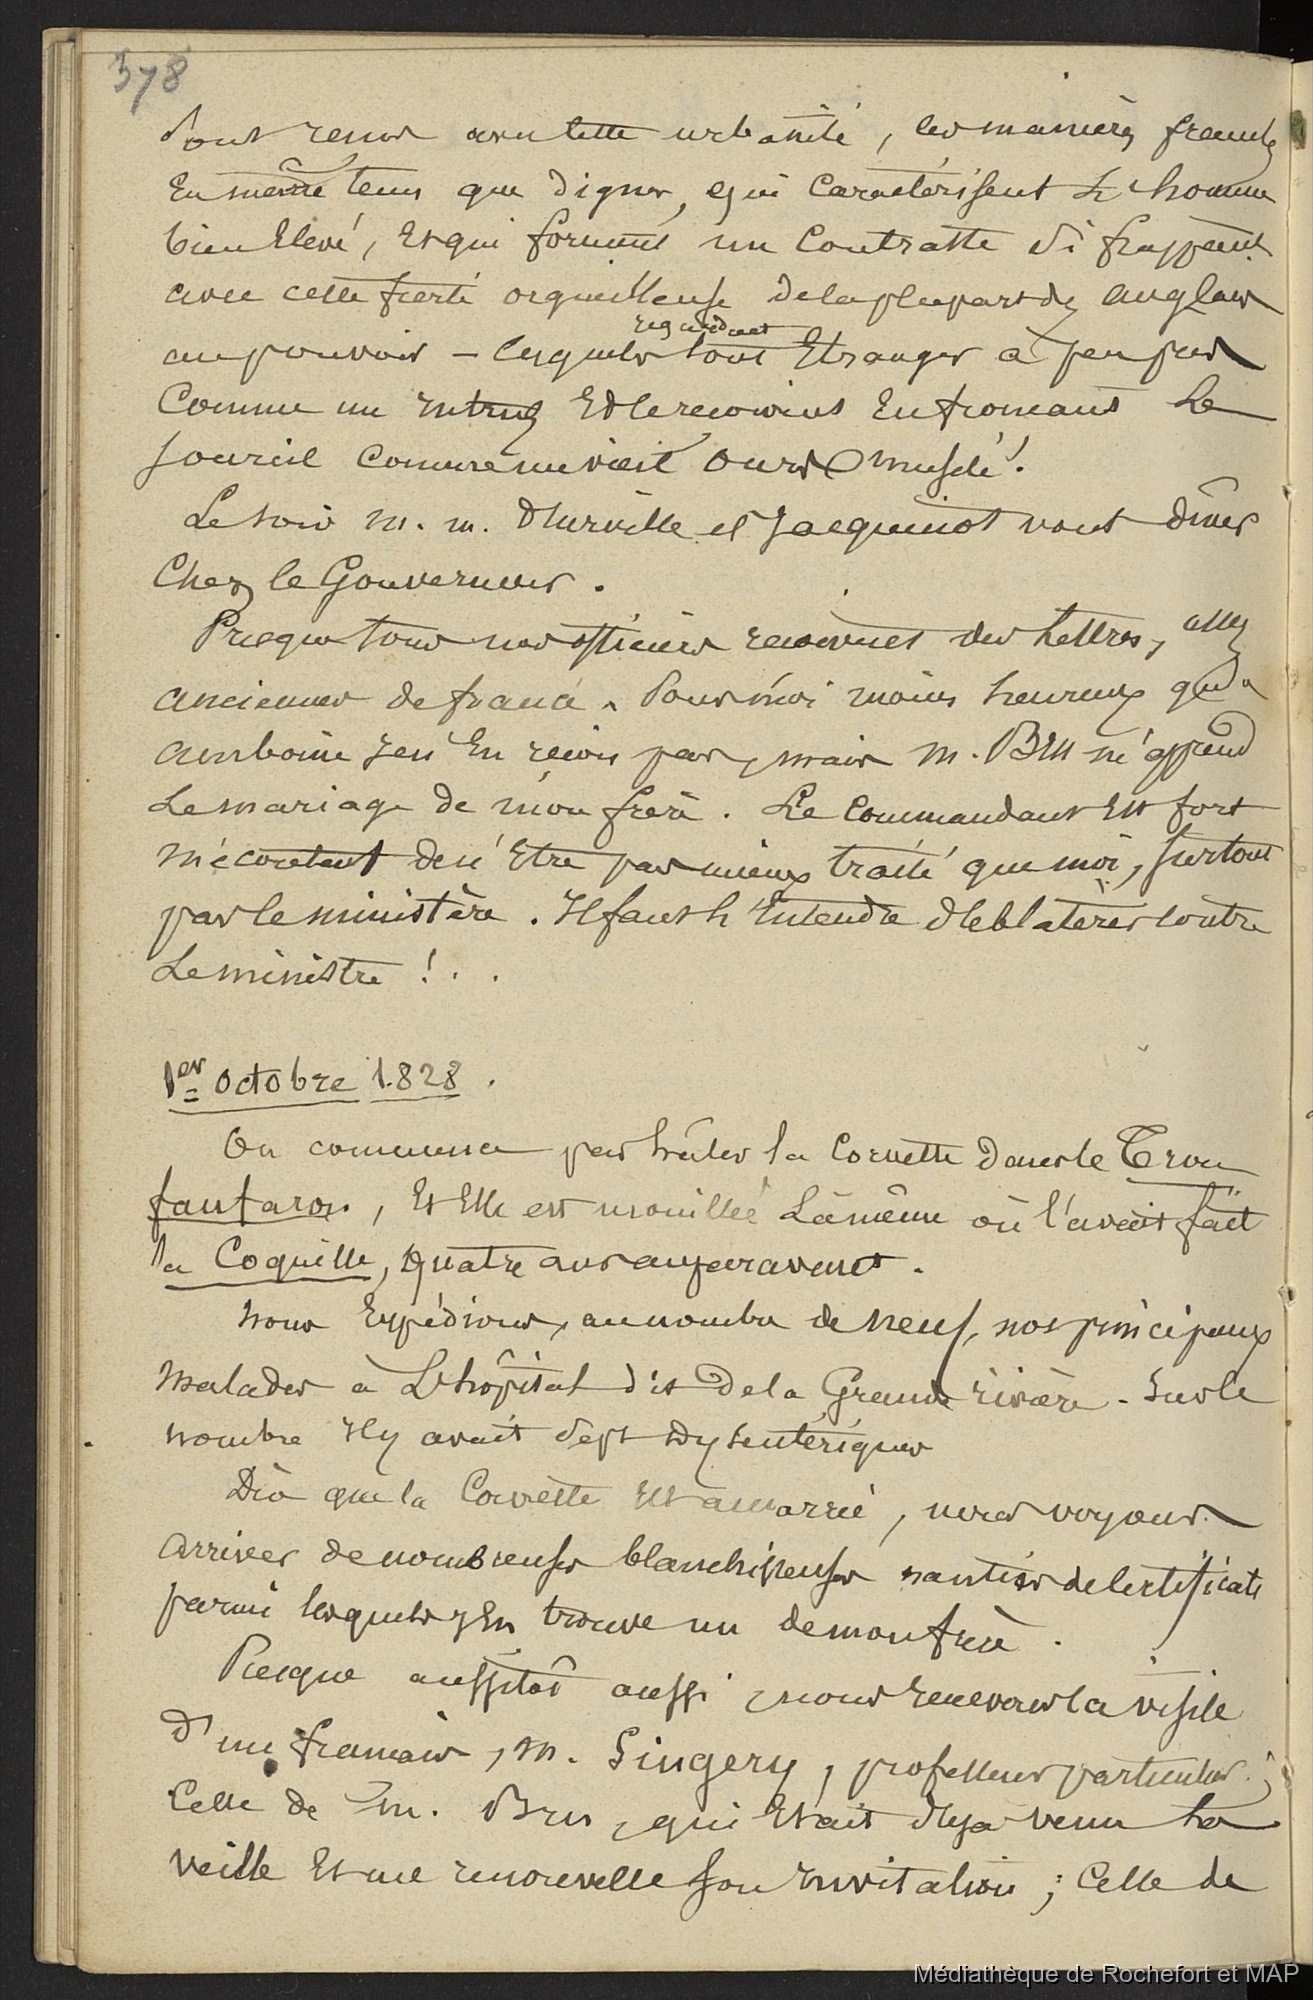 378
sont reçus avec cette urbanité, ces manières franches
En même tems que dignes, qui caractérisent L'homme
bien Elevé, Et qui forment un Contraste si frappant
avec cette fierté orgueilleuse de la plupart des anglais
au pouvoir – lesquels regardent tout Etranger à peu près
Comme un intrus Et le reçoivent En fronçant Le
sourcil comme un vieil ours muselé !
Le soir m. m. d'Urville et Jacquinot vont dîner
Chez le Gouverneur.
Presque tous nos officiers reçoivent des Lettres, assez
anciennes de france. Pour moi moins heureux qu'à
amboine j'en En reçois pas, mais m. Bus m'apprend
Le mariage de mon frère. Le Commandant Est fort
mécontent de n'Etre pas mieux traité que moi, surtout
par le ministère. Il faut L'Entendre déblatérer contre
Le ministre !..
1er octobre 1.828.
On commence par hâler la Corvette dans le Trou
fanfaron, Et Elle est mouillée Là même où l'avait fait
la Coquille, quatre ans auparavant.
Nous Expédions, au nombre de neuf, nos principaux
malades à L'hôpital dit de la Grande rivière. Sur le
nombre il y avait sept dysentériques
Dès que la Corvette Est amarrée, nous voyons
arriver de nombreuses blanchisseuses nanties de certificats
parmi lesquels j'En trouve un de mon frère.
Presque aussitôt aussi, nous recevons la visite
d'un français, m. Singery, professeur particulier ;
Celle de m. Bus, qui Etait déjà venu La
veille Et me renouvelle son invitation ; Celle de
Médiathèque de Rochefort et MAP